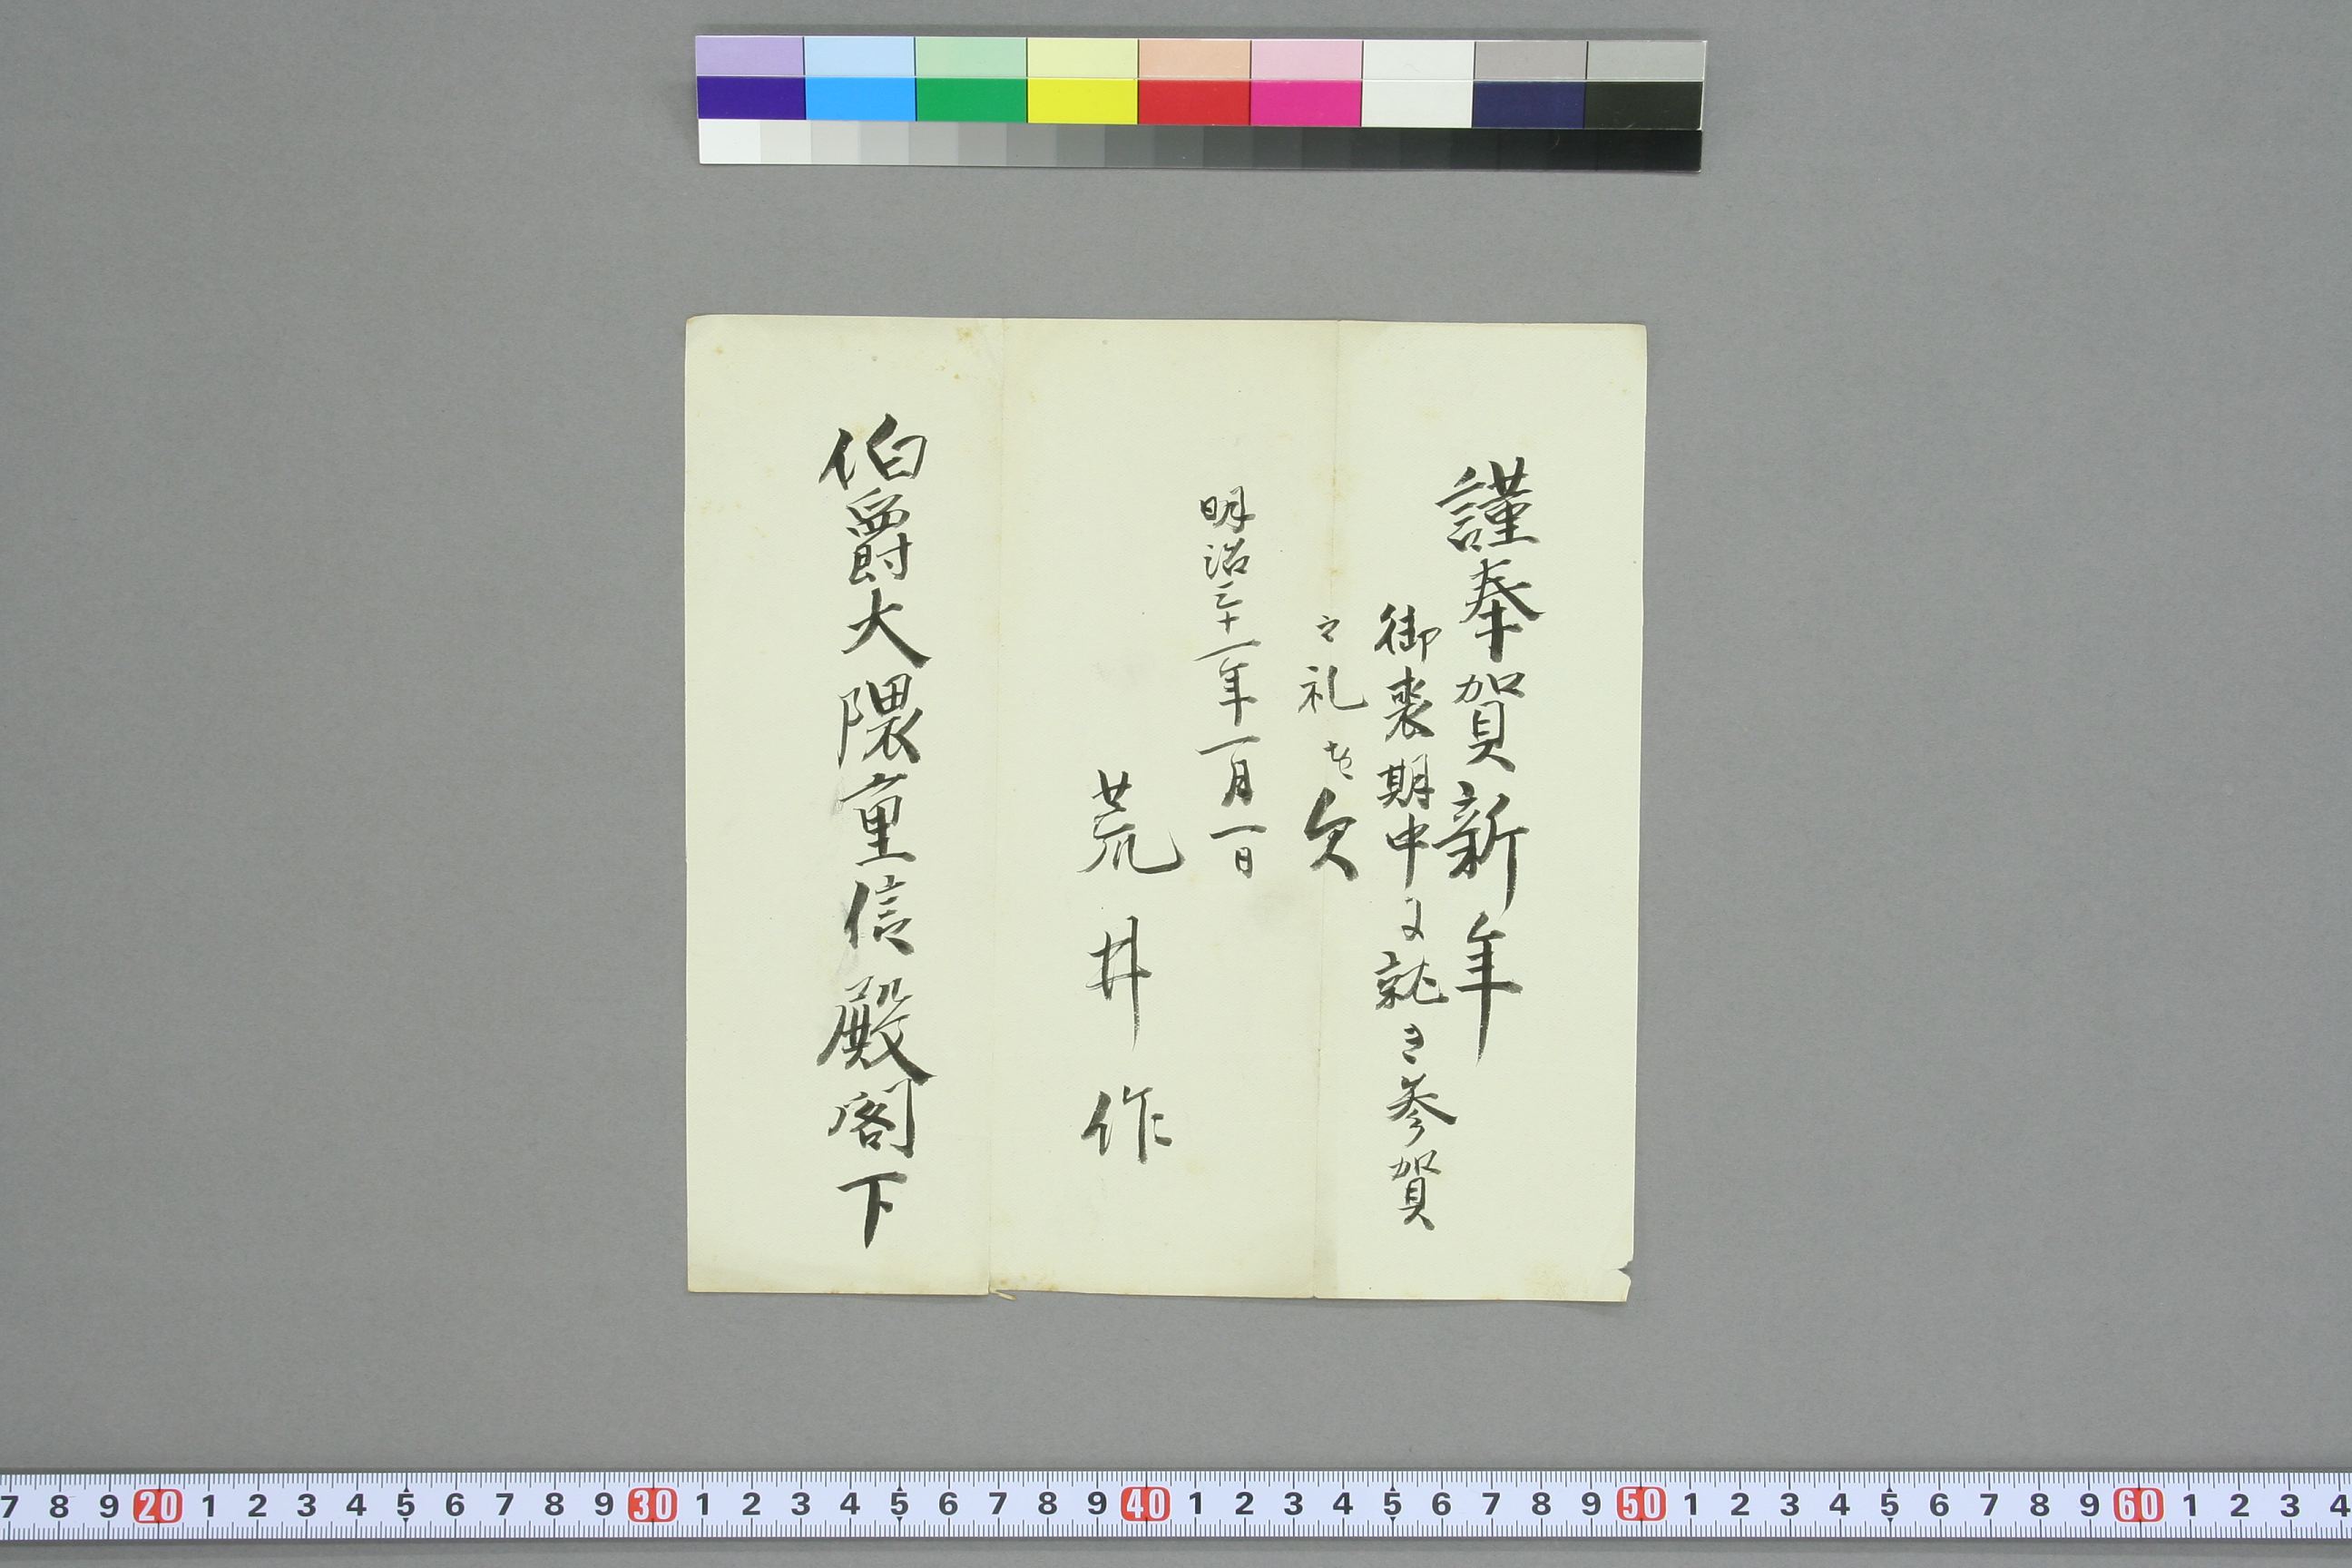 謹奉賀新年
御喪期中に就き参賀
之礼を欠
明治三十一年一月一日
荒井作
伯爵大隈重信殿閣下
7 8 9 20 1 2 3 4 5 6 7 8 9 30 1 2 3 4 5 6 7 8 9 40 1 2 3 4 5 6 7 8 9 50 1 2 3 4 5 6 7 8 9 60 1 2 3 4